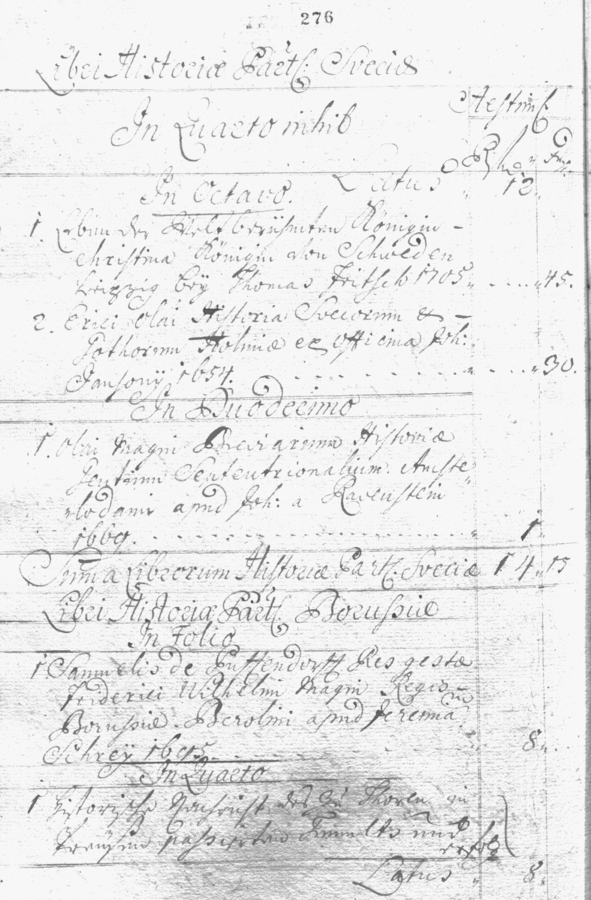 276
Libri Historiæ Part: Sveciæ
Aestim:
In Quarto nihil
Latus 12.
In Octavo.
1. Leben der Weltberühmten Königin
Christina Königin von Schweden
Leipzig bey Thomas Fritsch 1705. 45.
2. Erici Olai Historia Svecorum &
Gothorum Holmiæ ex officina Joh:
Jansonii 1654. 30.
In Duodecimo
1. Olai Magni Breviarium Historiæ
Gentium Septentrionalium. Amste
lodami apud Joh: a Ravenstein
1669. 1.
Summa Librorum Historiæ Part: Sveciæ 14. 15
Libri Historiæ Part: Borussiæ
In Folio
1 Samuelis de Puffendorff Res gestæ
Friderici Wilhelmi Magni
Borussiæ. Berolini apud Jeremia
Schrey 1695. 8.
In Quarto
1 Historische Nachricht des zu Thorn in
Preussen passirten Tumults und
Latus 8.